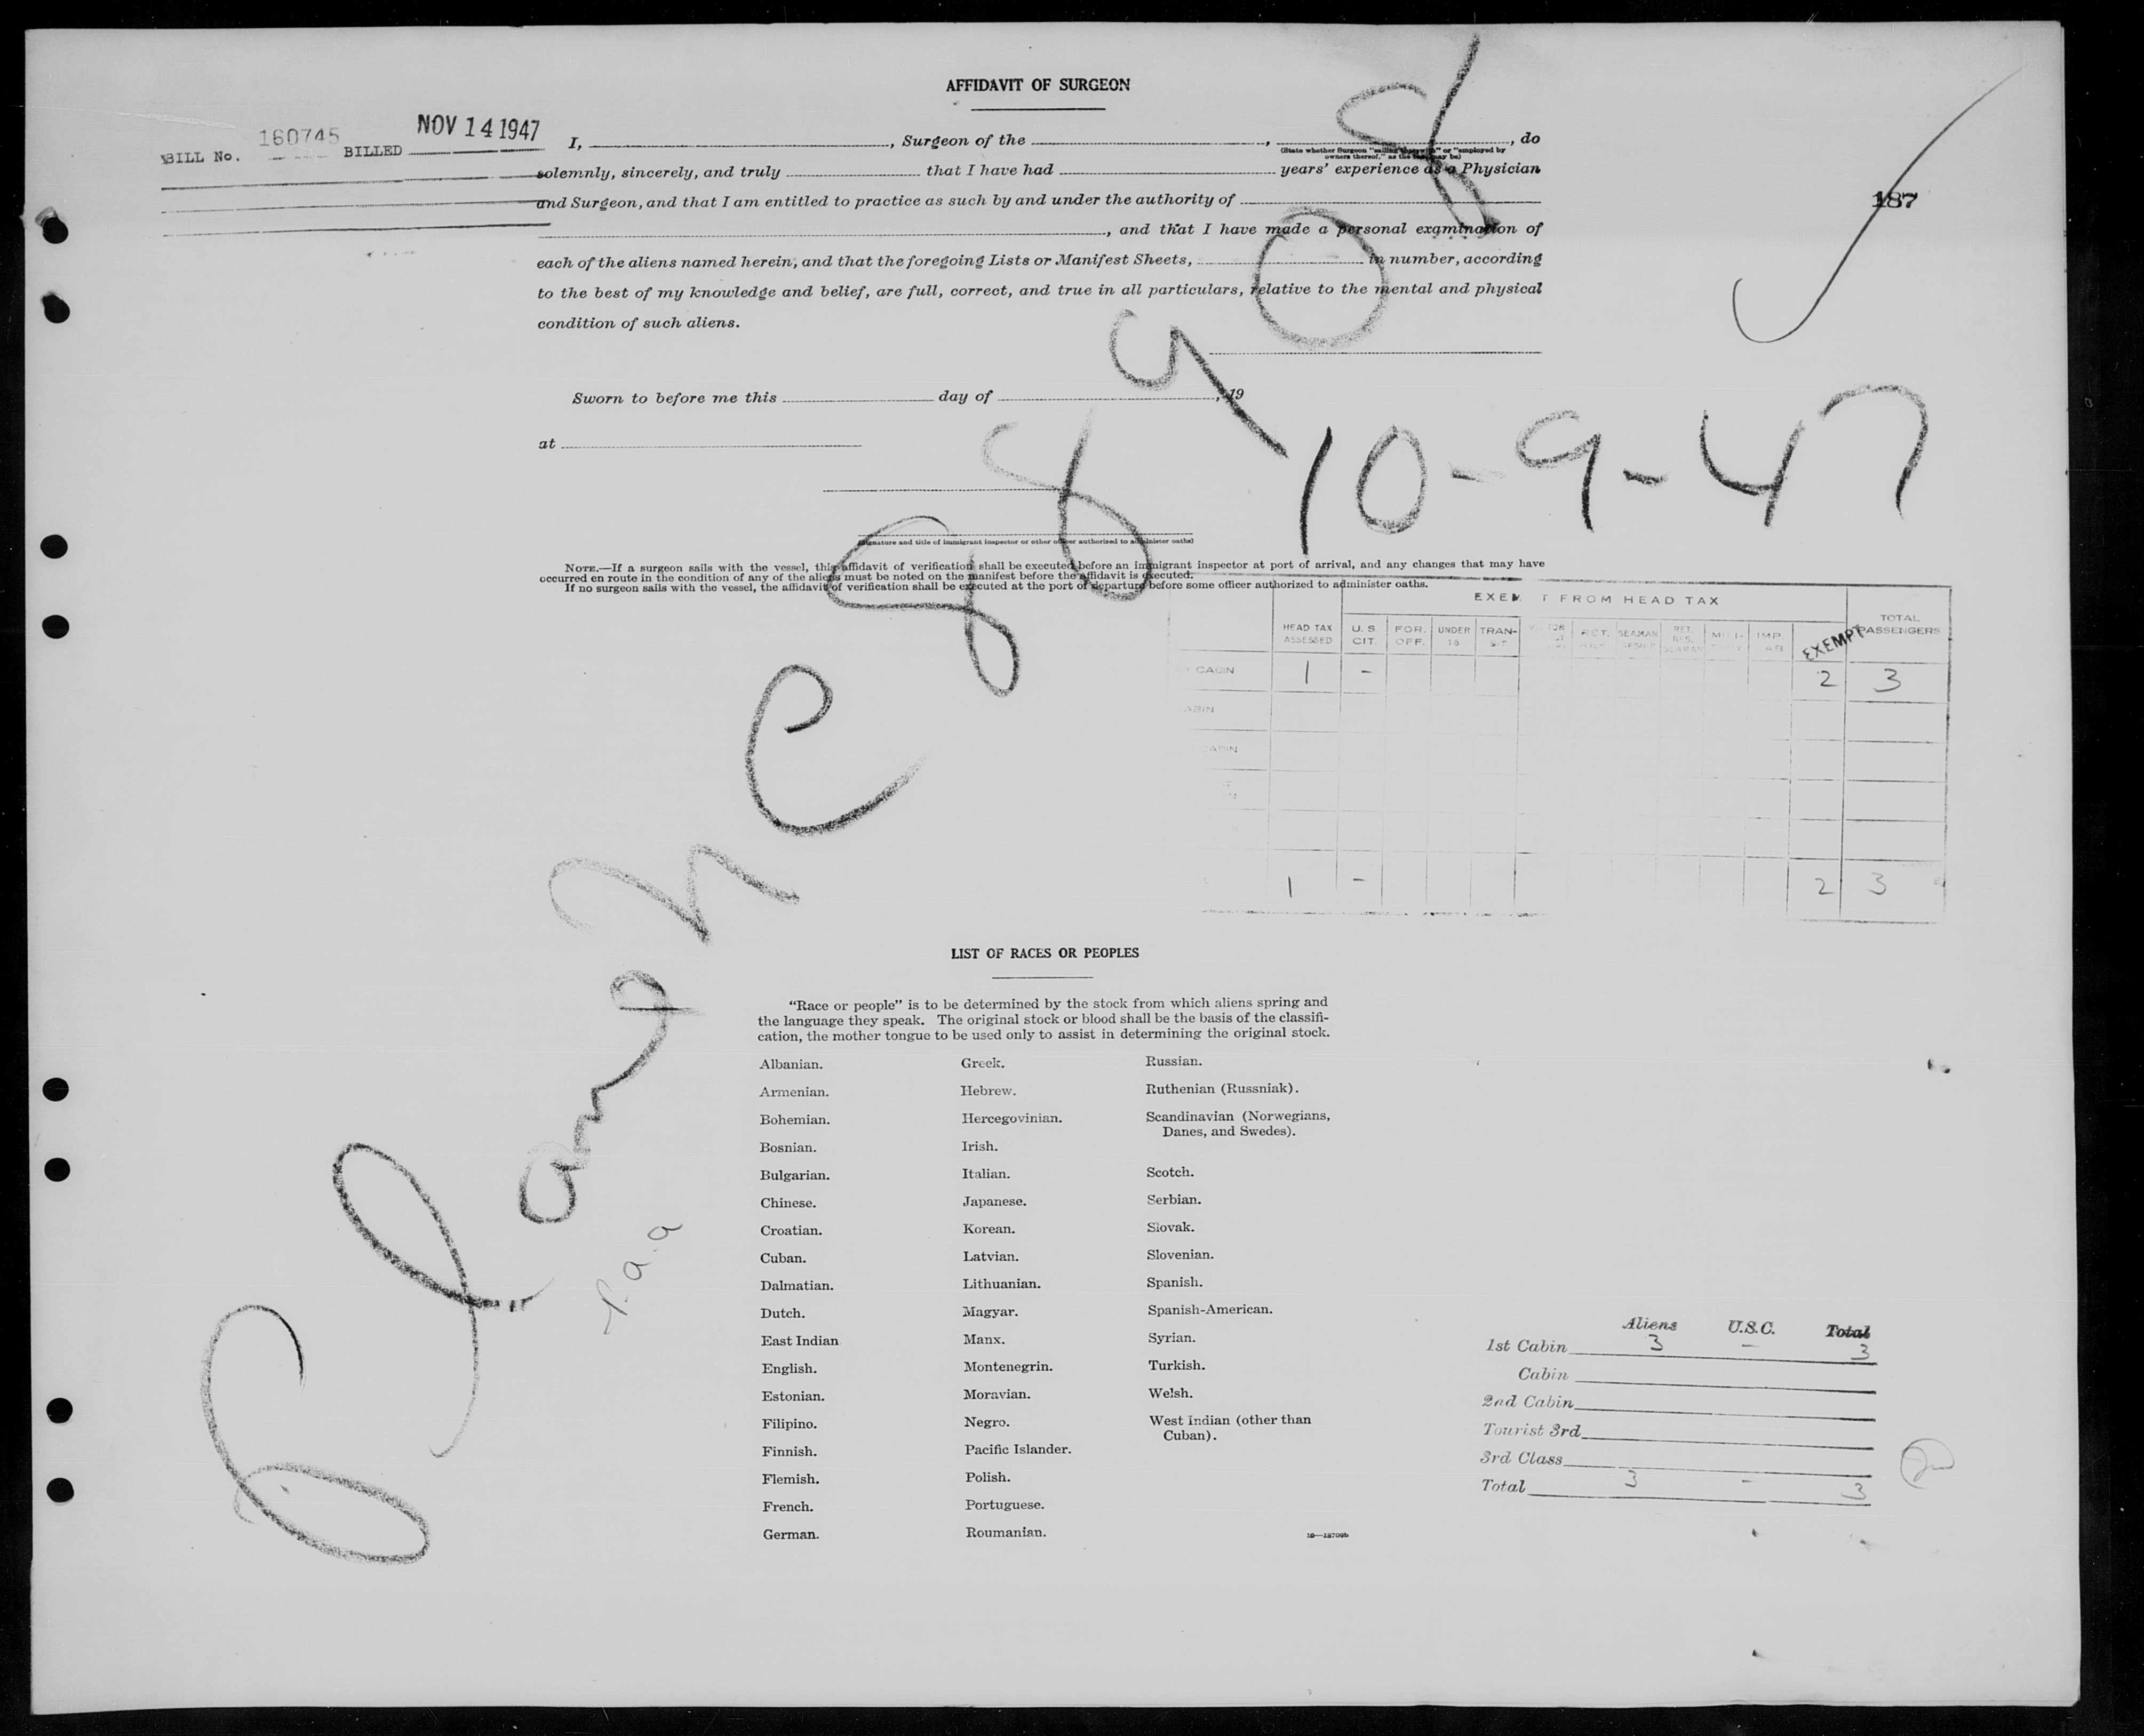 AFFIDAVIT OF SURGEON
BILL No. 160745 BILLED NOV 14 1947
I, , Surgeon of the , , do
(State whether Surgeon "sailing therewith" or "employed by
owners thereof," as the case may be)
solemnly, sincerely, and truly that I have had years' experience as a Physician
and Surgeon, and that I am entitled to practice as such by and under the authority of
187
, and that I have made a personal examination of
each of the aliens named herein, and that the foregoing Lists or Manifest Sheets, in number, according
to the best of my knowledge and belief, are full, correct, and true in all particulars, relative to the mental and physical
condition of such aliens.
Sworn to before me this day of , 19
at
10-9-47
(Signature and title of immigrant inspector or other officer authorized to administer oaths)
NOTE.—If a surgeon sails with the vessel, this affidavit of verification shall be executed before an immigrant inspector at port of arrival, and any changes that may have
occurred en route in the condition of any of the aliens must be noted on the manifest before the affidavit is executed.
If no surgeon sails with the vessel, the affidavit of verification shall be executed at the port of departure before some officer authorized to administer oaths.
Plane NC 88908
P.a.a
EXEMPT FROM HEAD TAX
HEAD TAX ASSESSED U.S. CIT. FOR. OFF. UNDER 16 TRAN-SIT RET. SEAMAN RET. RES. MILI- IMP. EXEMPT TOTAL PASSENGERS
CABIN 1 - 2 3
CABIN
CABIN
1 - 2 3
LIST OF RACES OR PEOPLES
"Race or people" is to be determined by the stock from which aliens spring and
the language they speak. The original stock or blood shall be the basis of the classifi-
cation, the mother tongue to be used only to assist in determining the original stock.
Albanian.
Armenian.
Bohemian.
Bosnian.
Bulgarian.
Chinese.
Croatian.
Cuban.
Dalmatian.
Dutch.
East Indian
English.
Estonian.
Filipino.
Finnish.
Flemish.
French.
German.
Greek.
Hebrew.
Hercegovinian.
Irish.
Italian.
Japanese.
Korean.
Latvian.
Lithuanian.
Magyar.
Manx.
Montenegrin.
Moravian.
Negro.
Pacific Islander.
Polish.
Portuguese.
Roumanian.
Russian.
Ruthenian (Russniak).
Scandinavian (Norwegians,
Danes, and Swedes).
Scotch.
Serbian.
Slovak.
Slovenian.
Spanish.
Spanish-American.
Syrian.
Turkish.
Welsh.
West Indian (other than
Cuban).
16—18709b
Aliens U.S.C. Total
1st Cabin 3 - 3
Cabin
2nd Cabin
Tourist 3rd
3rd Class
Total 3 - 3